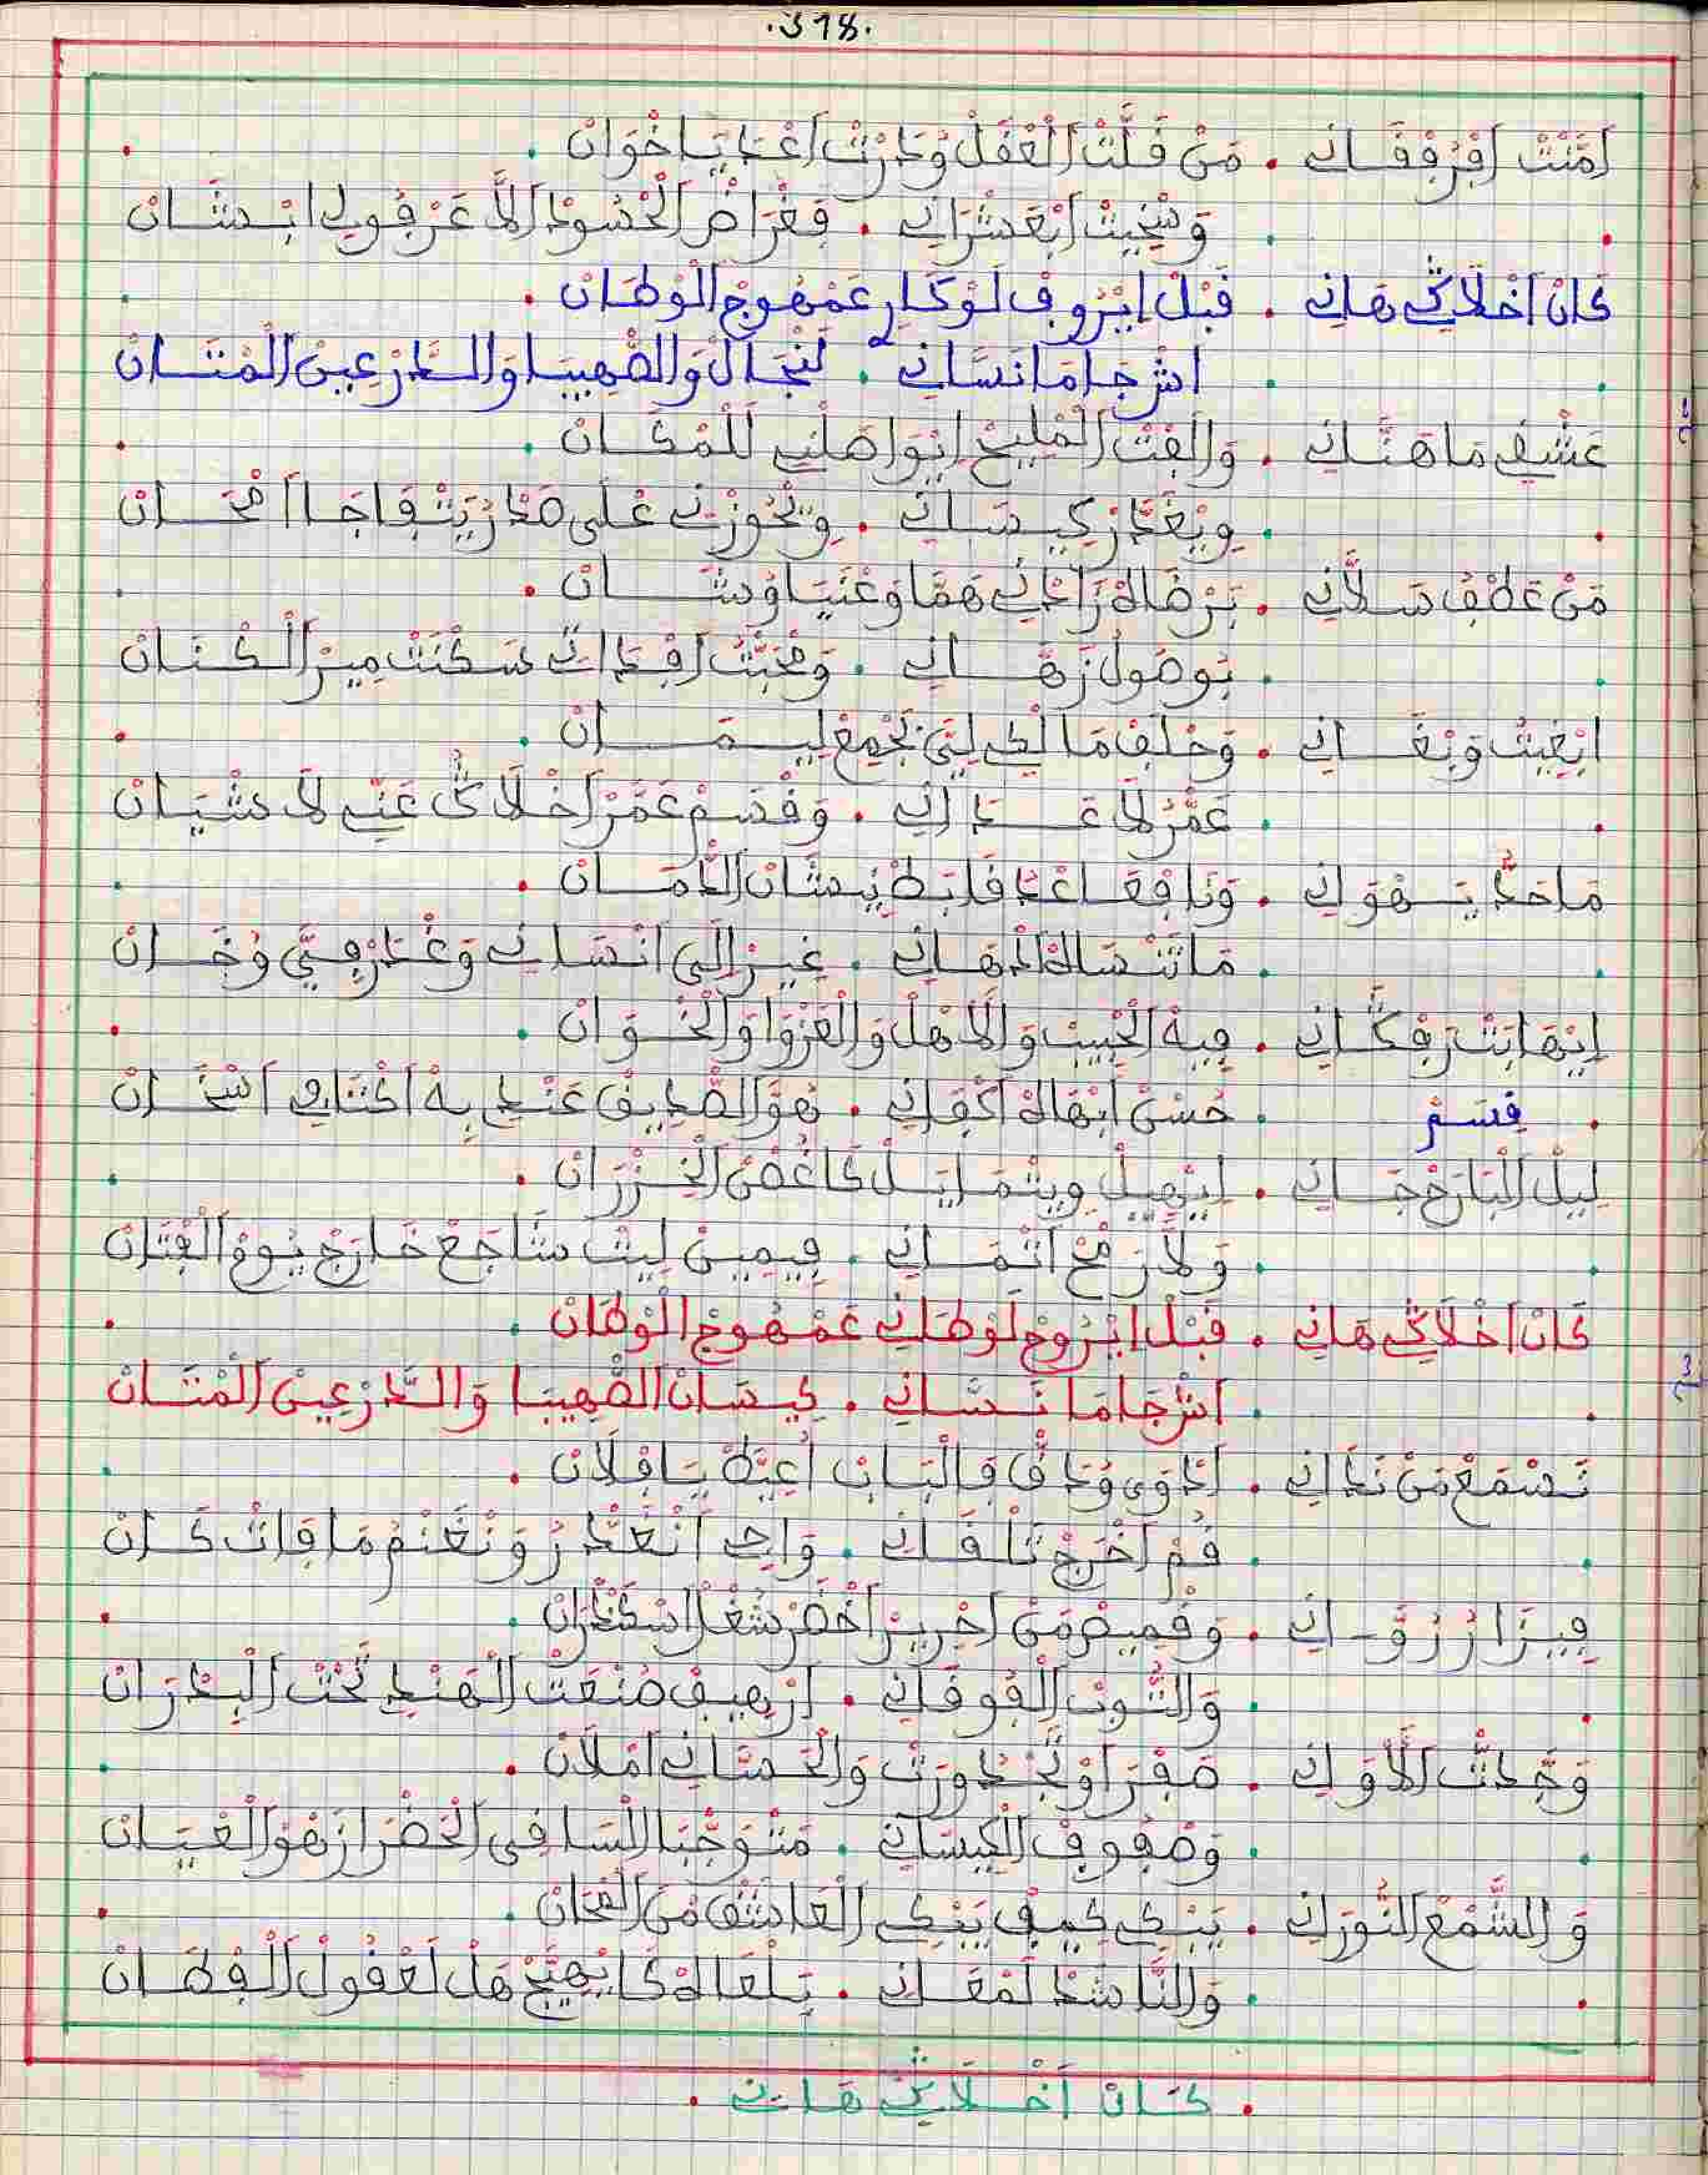 .318.
امَّنْتْ افْرْفْقَـانِي . مَنْ قَلَّتْ الْعْقَلْ وَدَرْتْ اعْدَايَا خْوَانْ .
وَسْخِيتْ ابْعَشْرَانِي . فَغْرَاضْ الْحْسُودْ الاَّ عَرْفُولِي ابْـشَـانْ
كَانْ اخْلَاكْ هَانِي . قَبْلْ ايْرُوفْ لَوْكَارِ عَمْهُوجْ الْوْطَانْ .
اشْ جَا مَا نَسَّانِي . لَنْجَالْ وَالصّْهِيبَا وَالـدَّرْعِينْ الْمْتَـانْ
عَشْقِي مَا هَنَّـانِي . وَالِفْتْ الْمْلِيحْ ايْوَاصَلْنِي لَلْمْكَـانْ .
وِيْعَمَّرْ كِيـسَـانِي . وِيْحُوزْنِي عْلَى صَدْرُ يَتْفَاجَا امْحَـانْ
مَنْ عَطْفُ سَـلَّانِي . بَرْضَاهْ زَادْنِي هَمَّا وَعْنَايَا وُشَـانْ .
بَوْصُولْ زَهَّـانِي . وَمْحَبّْتُ افْدَاتِي سَكْنَتْ مِيرْ الْـكْـنَـانْ
ابْغِيتُ وَبْغَـانِي . وَحْلَفْ مَالْكِي لِيَّ بَجْمِعْ لِيـمَـانْ .
عَمْرُ لَا عَـادَانِي . وَقْسَمْ عَمَّرْ اخْلَاكْ عَنِّي لَا شْيَـانْ
مَا حَدّْ يَـهْوَانِي . وَنَا فْعَاهْدُ قَابَطْ نِيشَانْ الْامَـانْ .
مَا تَنْسَاهْ اذْهَـانِي . غِيرْ الَى انْسَانِي وَغْدَرْ فِيَّ وُخَـانْ
ابْهَا بَتْ رَفْكَـانِي . فِيهْ الْحْبِيبْ وَالْاهْلْ وَالْعَزْوَا وَالْخْـوَانْ .
قسم . حُسْنْ ابْهَاهْ اكْفَانِي . هُوَ الصّْدِيقْ عَنْدِي بِهْ اكْنَانِي اسْخَـانْ
لِيلْ الْبَارَحْ جَـانِي . ايْهِيلْ وِيتْمَايَـلْ كَاغْصْنْ الْخِيزْرَانْ .
وَلَّا رَمْحْ اثْمَـانِي . فِيمِينْ لِيثْ شَاجَعْ خَارَجْ يُومْ الْفْتَانْ
كَانْ اخْلَاكْ هَانِي . قَبْلْ ايْرُوحْ لَوْطَـانِي عَمْهُوجْ الْوْطَانْ .
اشْ جَا مَا نَـسَّـانِي . كِيسَـانْ الصّْهِيبَا وَالـدَّرْعِينْ الْمْتَـانْ
نَسْمَعْ مَنْ نَدَانِي . ادْوَى وُدَقّْ فَالْبَـابْ اعِيَّطْ يَـا فْلَانْ .
قُمْ اخْرَجْ تَلْقَـانِي . وَاجِي انْغَدّْرُ وَنْغَنْمُ مَا فَاتْ كَـانْ
فِيزَارْ زُوَّ-انِي . وَقْمِيصْ مَنْ احْرِيرْ اخْضَرْ شُغْلْ اسْكَنْدْرَانْ .
وَالثُّوبْ الْفُوقَـانِي . ارْهِيفْ صُنْعَتْ الْهَنْدِي تَحْتْ الْبَدْرَانْ
وَجَّدْتْ الْاوَانِي . صَفْرَا وُنَجْدُورَتْ وَالْحَسَانِي امْلَانْ .
وَصْفُوفْ الْكِيسَـانِي . مَتْوَجّْبَا الْسَاقِي الْحَضْرَا زَهْوْ الْعْيَـانْ
وَالشَّمْعْ النُّورَانِي . يَبْـكِي كِيفْ يَبْكِي الْعَاشَقْ مَنْ الْمْحَانْ .
وَالنَّاشَدْ لَمْعَـانِي . تَـلْقَاهْ كَا يْهِيَّجْ هَلْ لَعْقُولْ الْفْطَـانْ
. كَـانْ اخْـلَاكْ هَـانِي .